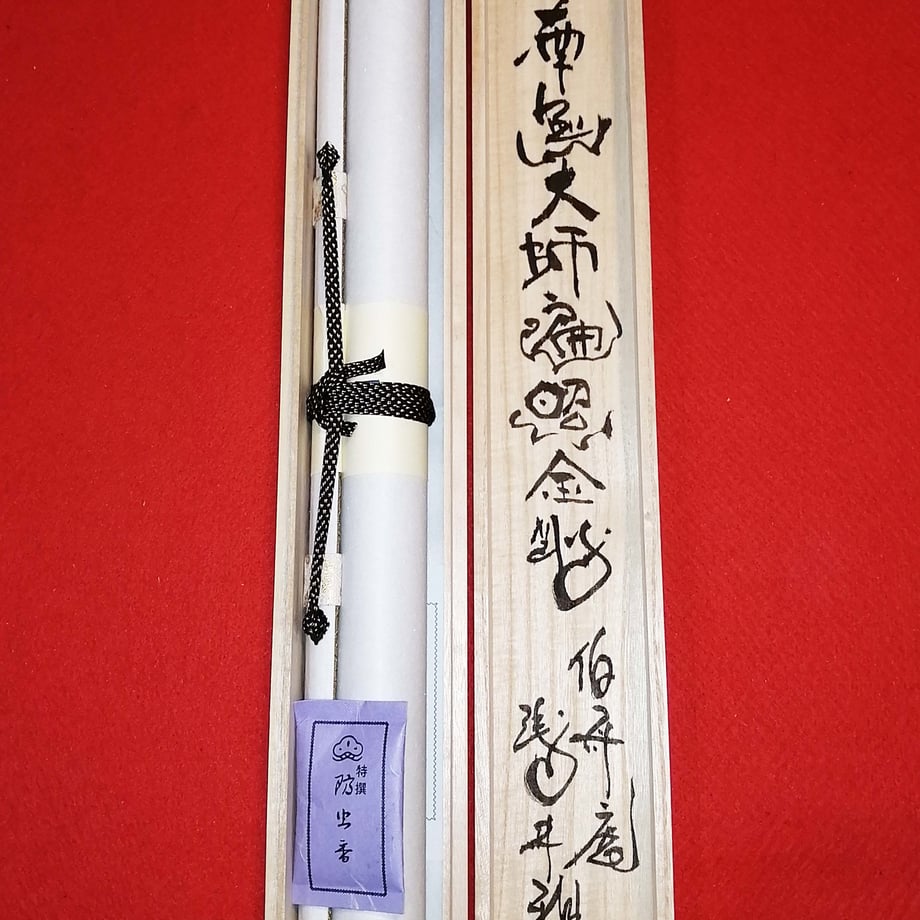 南無大師遍照金剛
伯舟庵
井
特撰
防虫香